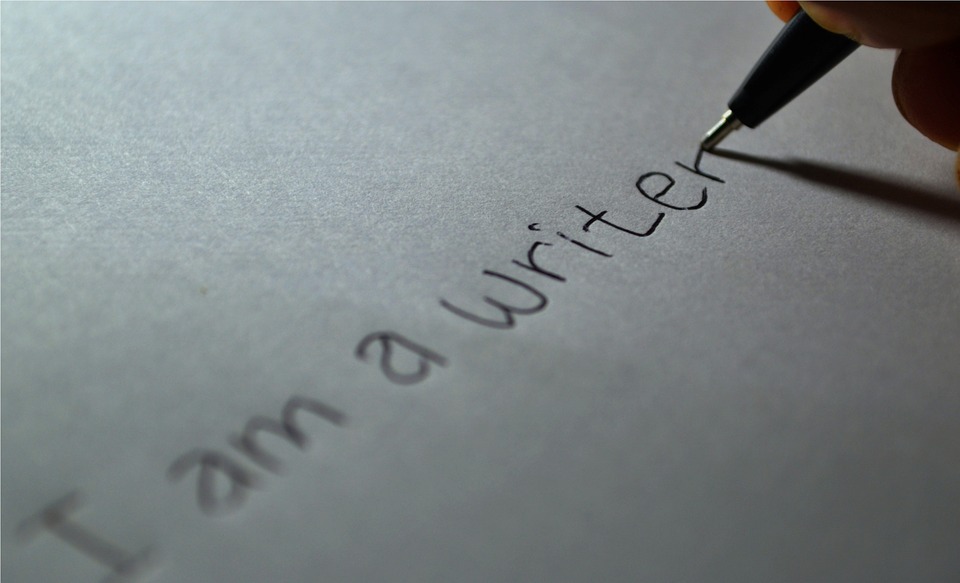 I am a writer